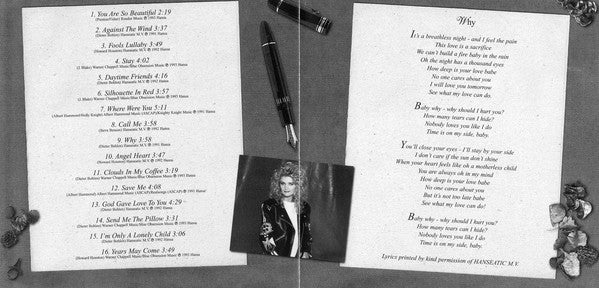 1. You Are So Beautiful 2:19
(Preston/Fisher) Rondor Music ℗ 1992 Hansa
2. Against The Wind 3:37
(Dieter Bohlen) Hanseatic M.V. ℗ 1991 Hansa
3. Fools Lullaby 3:49
(Howard Houston) Hanseatic M.V. ℗ 1992 Hansa
4. Stay 4:02
(J. Blake) Warner Chappell Music/Blue Obsession Music ℗ 1993 Hansa
5. Daytime Friends 4:16
(Dieter Bohlen) Hanseatic M.V. ℗ 1992 Hansa
6. Silhouette In Red 3:57
(J. Blake) Warner Chappell Music/Blue Obsession Music ℗ 1993 Hansa
7. Where Were You 5:11
(Albert Hammond/Holly Knight) Albert Hammond Music (ASCAP)/Knighty Knight Music ℗ 1991 Hansa
8. Call Me 3:58
(Steve Benson) Hanseatic M.V. ℗ 1992 Hansa
9. Why 3:58
(Dieter Bohlen) Hanseatic M.V. ℗ 1992 Hansa
10. Angel Heart 3:47
(Howard Houston) Hanseatic M.V. ℗ 1992 Hansa
11. Clouds In My Coffee 3:19
(Dieter Bohlen) Warner Chappell Music/Blue Obsession Music ℗ 1993 Hansa
12. Save Me 4:08
(Albert Hammond) Albert Hammond Music (ASCAP)/Realsongs (ASCAP) ℗ 1991 Hansa
13. God Gave Love To You 4:29
(Dieter Bohlen) Hanseatic M.V. ℗ 1992 Hansa
14. Send Me The Pillow 3:31
(Dieter Bohlen) Warner Chappell Music/Blue Obsession Music ℗ 1993 Hansa
15. I'm Only A Lonely Child 3:06
(Dieter Bohlen) Hanseatic M.V. ℗ 1992 Hansa
16. Years May Come 3:49
(Howard Houston) Warner Chappell Music/Blue Obsession Music ℗ 1993 Hansa
Why
It's a breathless night - and I feel the pain
This love is a sacrifice
We can't build a fire baby in the rain
Oh the night has a thousand eyes
How deep is your love babe
No one cares about you
I will love you tomorrow
See what my love can do.
Baby why - why should I hurt you?
How many tears can I hide?
Nobody loves you like I do
Time is on my side, baby.
You'll close your eyes - I'll stay by your side
I don't care if the sun don't shine
When your heart feels like oh a motherless child
You are always ok in my mind
How deep is your love babe
No one cares about you
But it's not too late babe
See what my love can do!
Baby why - why should I hurt you?
How many tears can I hide?
Nobody loves you like I do
Time is on my side, baby.
Lyrics printed by kind permission of HANSEATIC M.V.